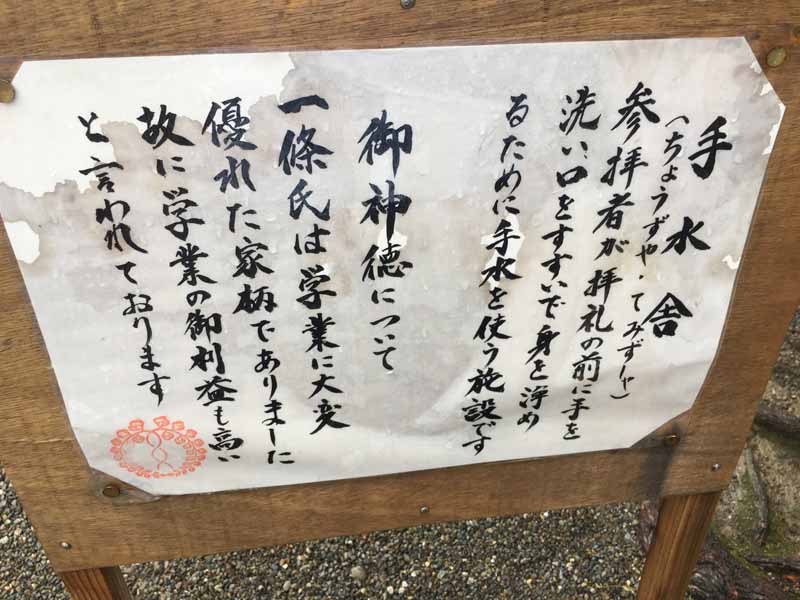 手水舎
（ちょうずや・てみずしゃ）
参拝者が拝礼の前に手を
洗い口をすすいで身を浄め
るために手水を使う施設です
御神徳について
一條氏は学業に大変
優れた家柄でありました
故に学業の御利益も高い
と言われております